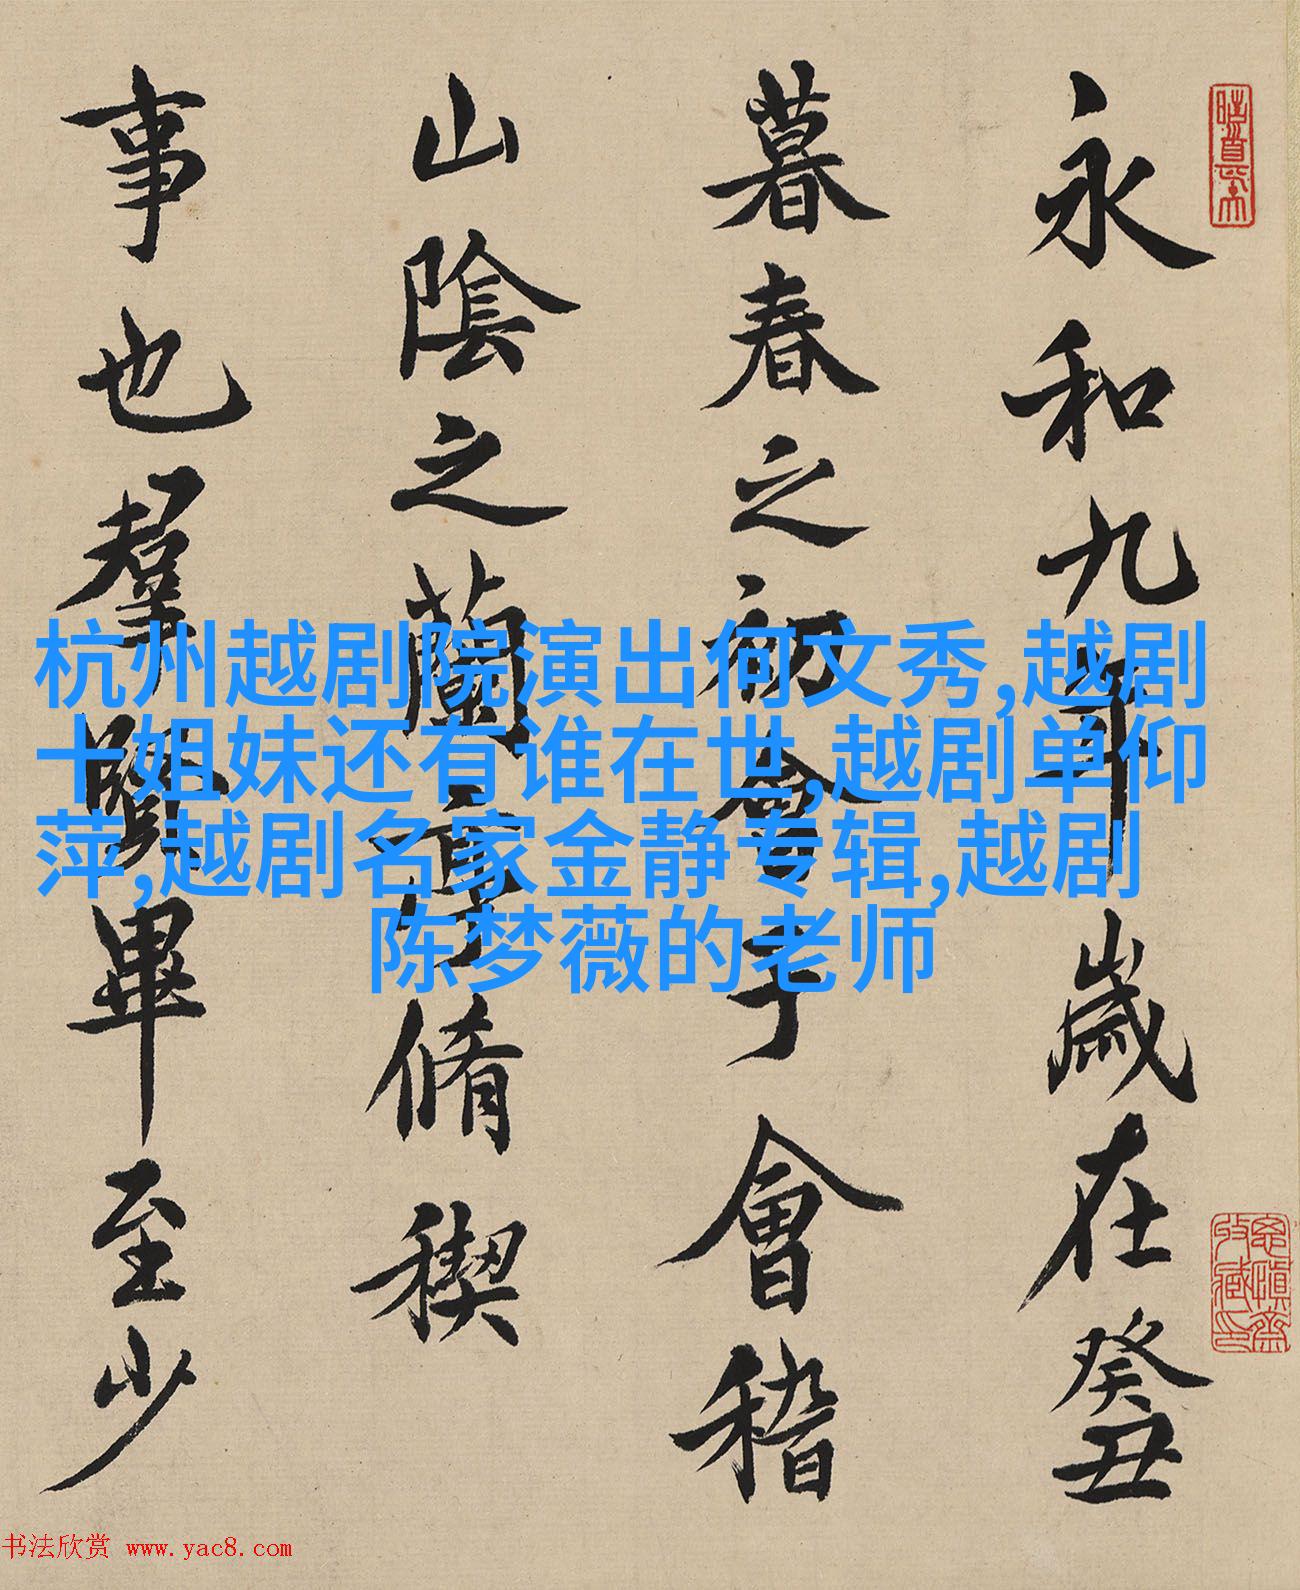 永和九年歲在癸丑
暮春之初會于會稽
山陰之蘭亭脩稧
事也羣賢畢至少
杭州越剧院演出何文秀,越剧
十姐妹还有谁在世,越剧单仰
萍,越剧名家金静专辑,越剧
陈梦薇的老师
书法欣赏 www.yac8.com